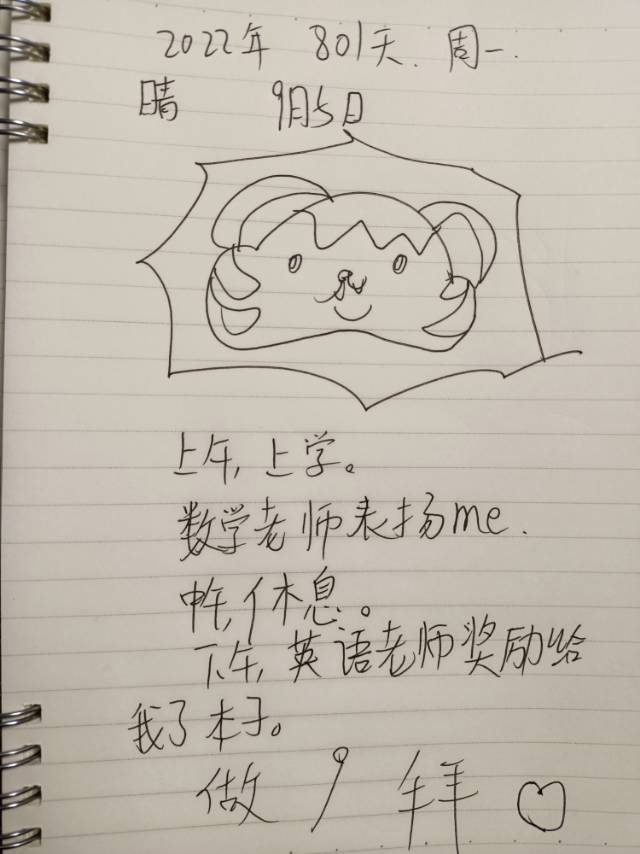 2022年 801天. 周一.
晴 9月5日
上午, 上学。
数学老师表扬me.
中午, 休息。
下午, 英语老师奖励给
我了本子。
做 9 拜